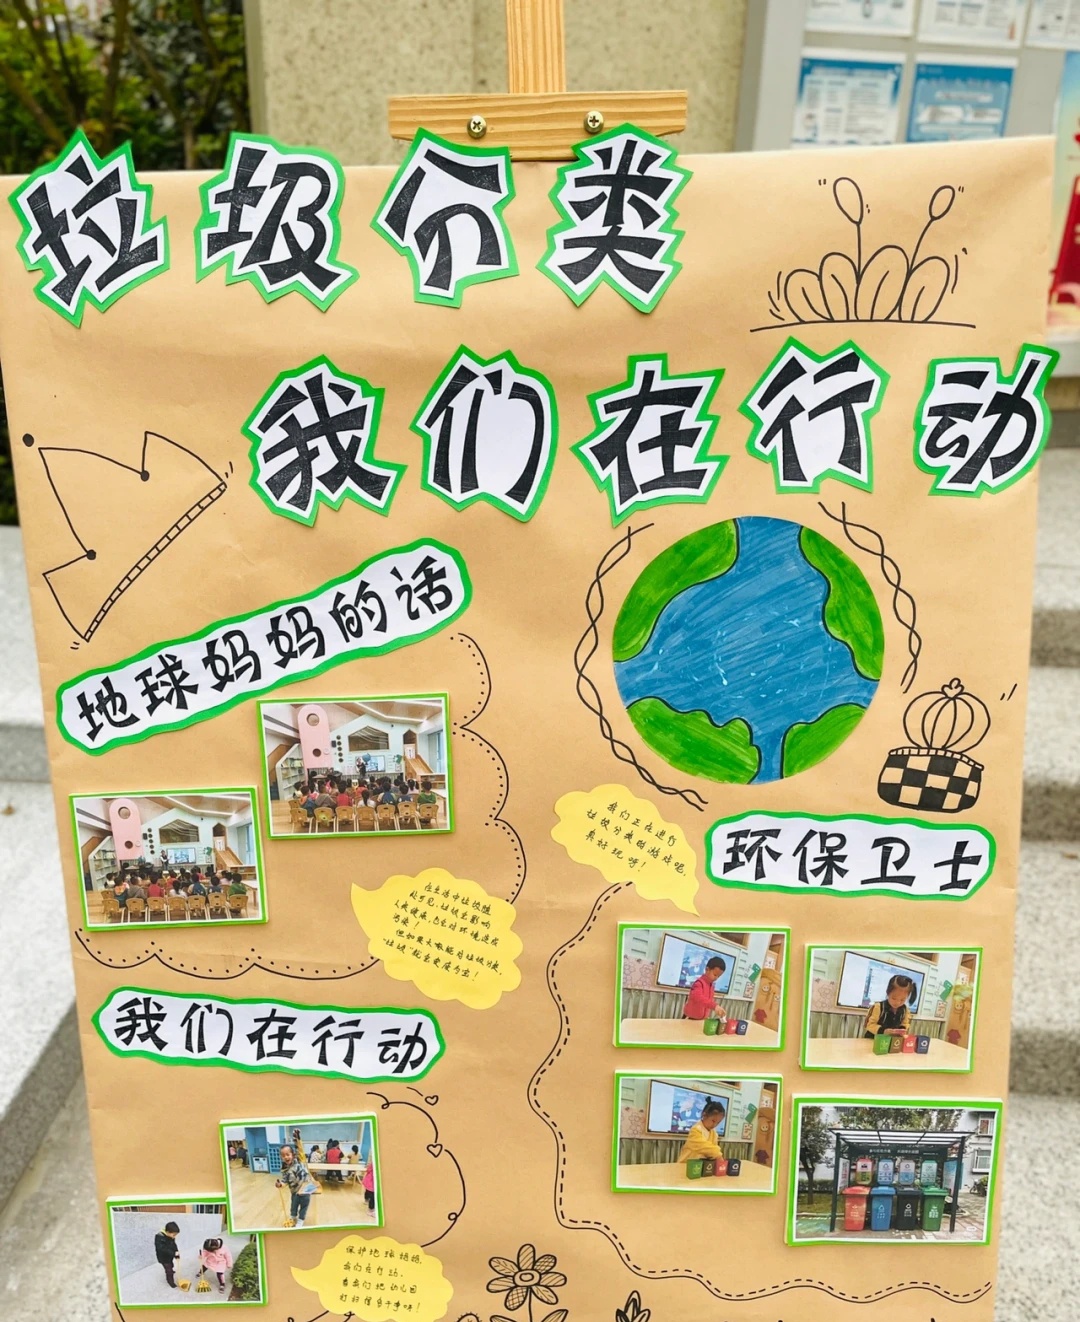 垃圾分类
我们在行动
地球妈妈的话
我们正在进行
垃圾分类的游戏呢,
真好玩呀!
环保卫士
在生活中垃圾随
处可见,垃圾会影响
人类健康,也会对环境造成
污染!
但如果大家能将垃圾分类,
"垃圾"就会变废为宝!
我们在行动
保护地球妈妈,
我们先行动,
看我们把幼儿园
打扫得多干净呀!